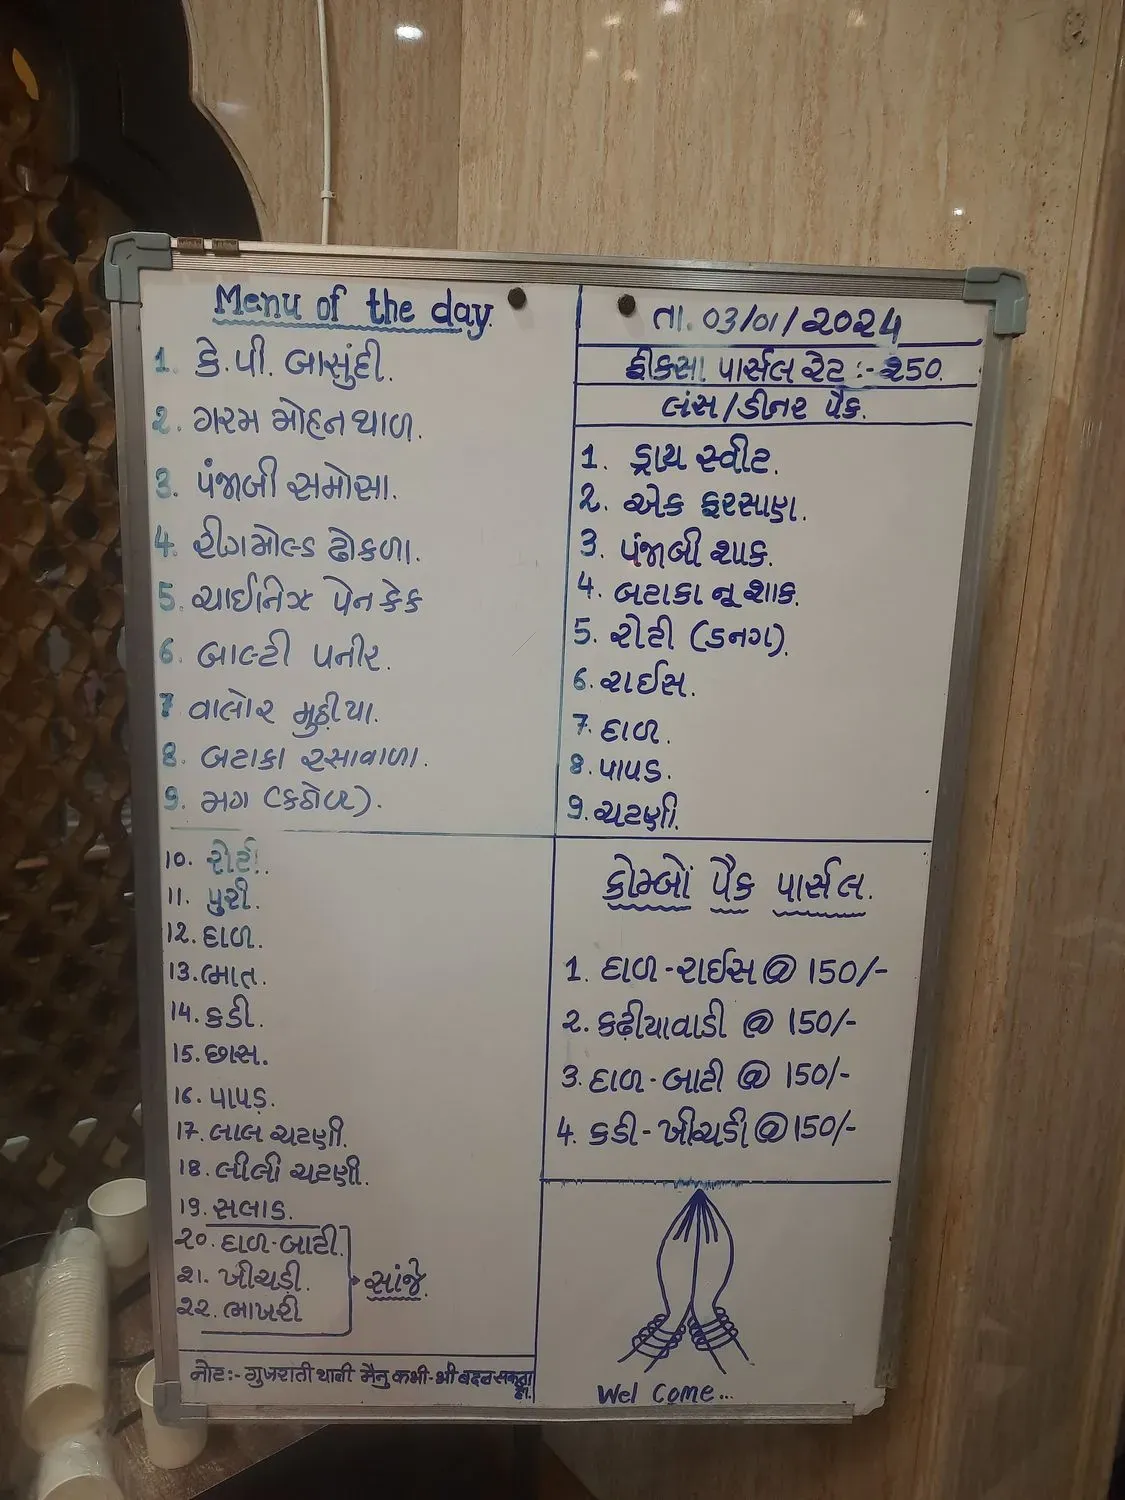 Menu of the day.
1. કે.પી. બાસુંદી.
2. ગરમ મોહનથાળ.
3. પંજાબી સમોસા.
4. રીંગમોલ્ડ ઢોકળા.
5. ચાઈનિઝ પેન કેક
6. બાલ્ટી પનીર.
7 વાલોર મુઠીયા.
8. બટાકા રસાવાળા.
9. મગ (કઠોળ).
10. રોટી.
11. પુરી.
12. દાળ.
13. ભાત.
14. કડી.
15. છાસ.
16. પાપડ.
17. લાલ ચટણી.
18. લીલી ચટણી.
19. સલાડ.
20. દાળ-બાટી.
21. ખીચડી.
22. ભાખરી
સાંજે.
નોટ:- ગુજરાતી થાળી મૈનુ કભી-ભી બદલ સકતા
હૈ.
તા. 03/01/2024
ફીકસા પાર્સલ રેટ :- 250.
લંસ/ડીનર પૈક.
1. ડ્રાય સ્વીટ.
2. એક ફરસાણ.
3. પંજાબી શાક.
4. બટાકા નૂ શાક.
5. રોટી (ડનગ).
6. રાઈસ.
7. દાળ.
8. પાપડ.
9. ચટણી.
કોમ્બોં પૈક પાર્સલ.
1. દાળ-રાઈસ @ 150/-
2. કઢીયાવાડી @ 150/-
3. દાળ-બાટી @ 150/-
4. કડી-ખીચડી @ 150/-
Wel Come...